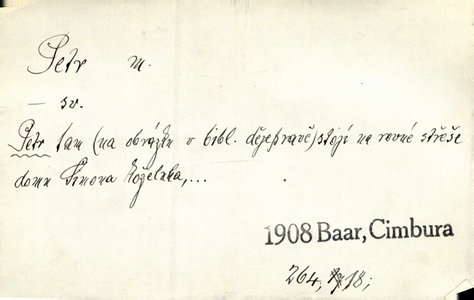 Petr m.
— sv.
Petr tam (na obrázku v bibl. dějepravě) stojí na rovné střeše
domu Šimona koželuha,...
1908 Baar, Cimbura
264, 18;